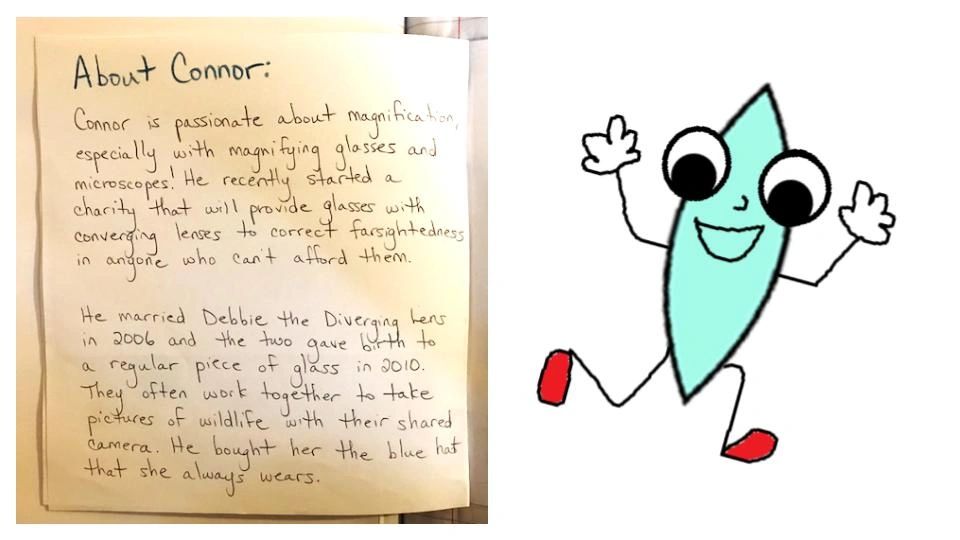 About Connor:
Connor is passionate about magnification,
especially with magnifying glasses and
microscopes! He recently started a
charity that will provide glasses with
converging lenses to correct farsightedness
in anyone who can't afford them.
He married Debbie the Diverging Lens
in 2006 and the two gave birth to
a regular piece of glass in 2010.
They often work together to take
pictures of wildlife with their shared
camera. He bought her the blue hat
that she always wears.